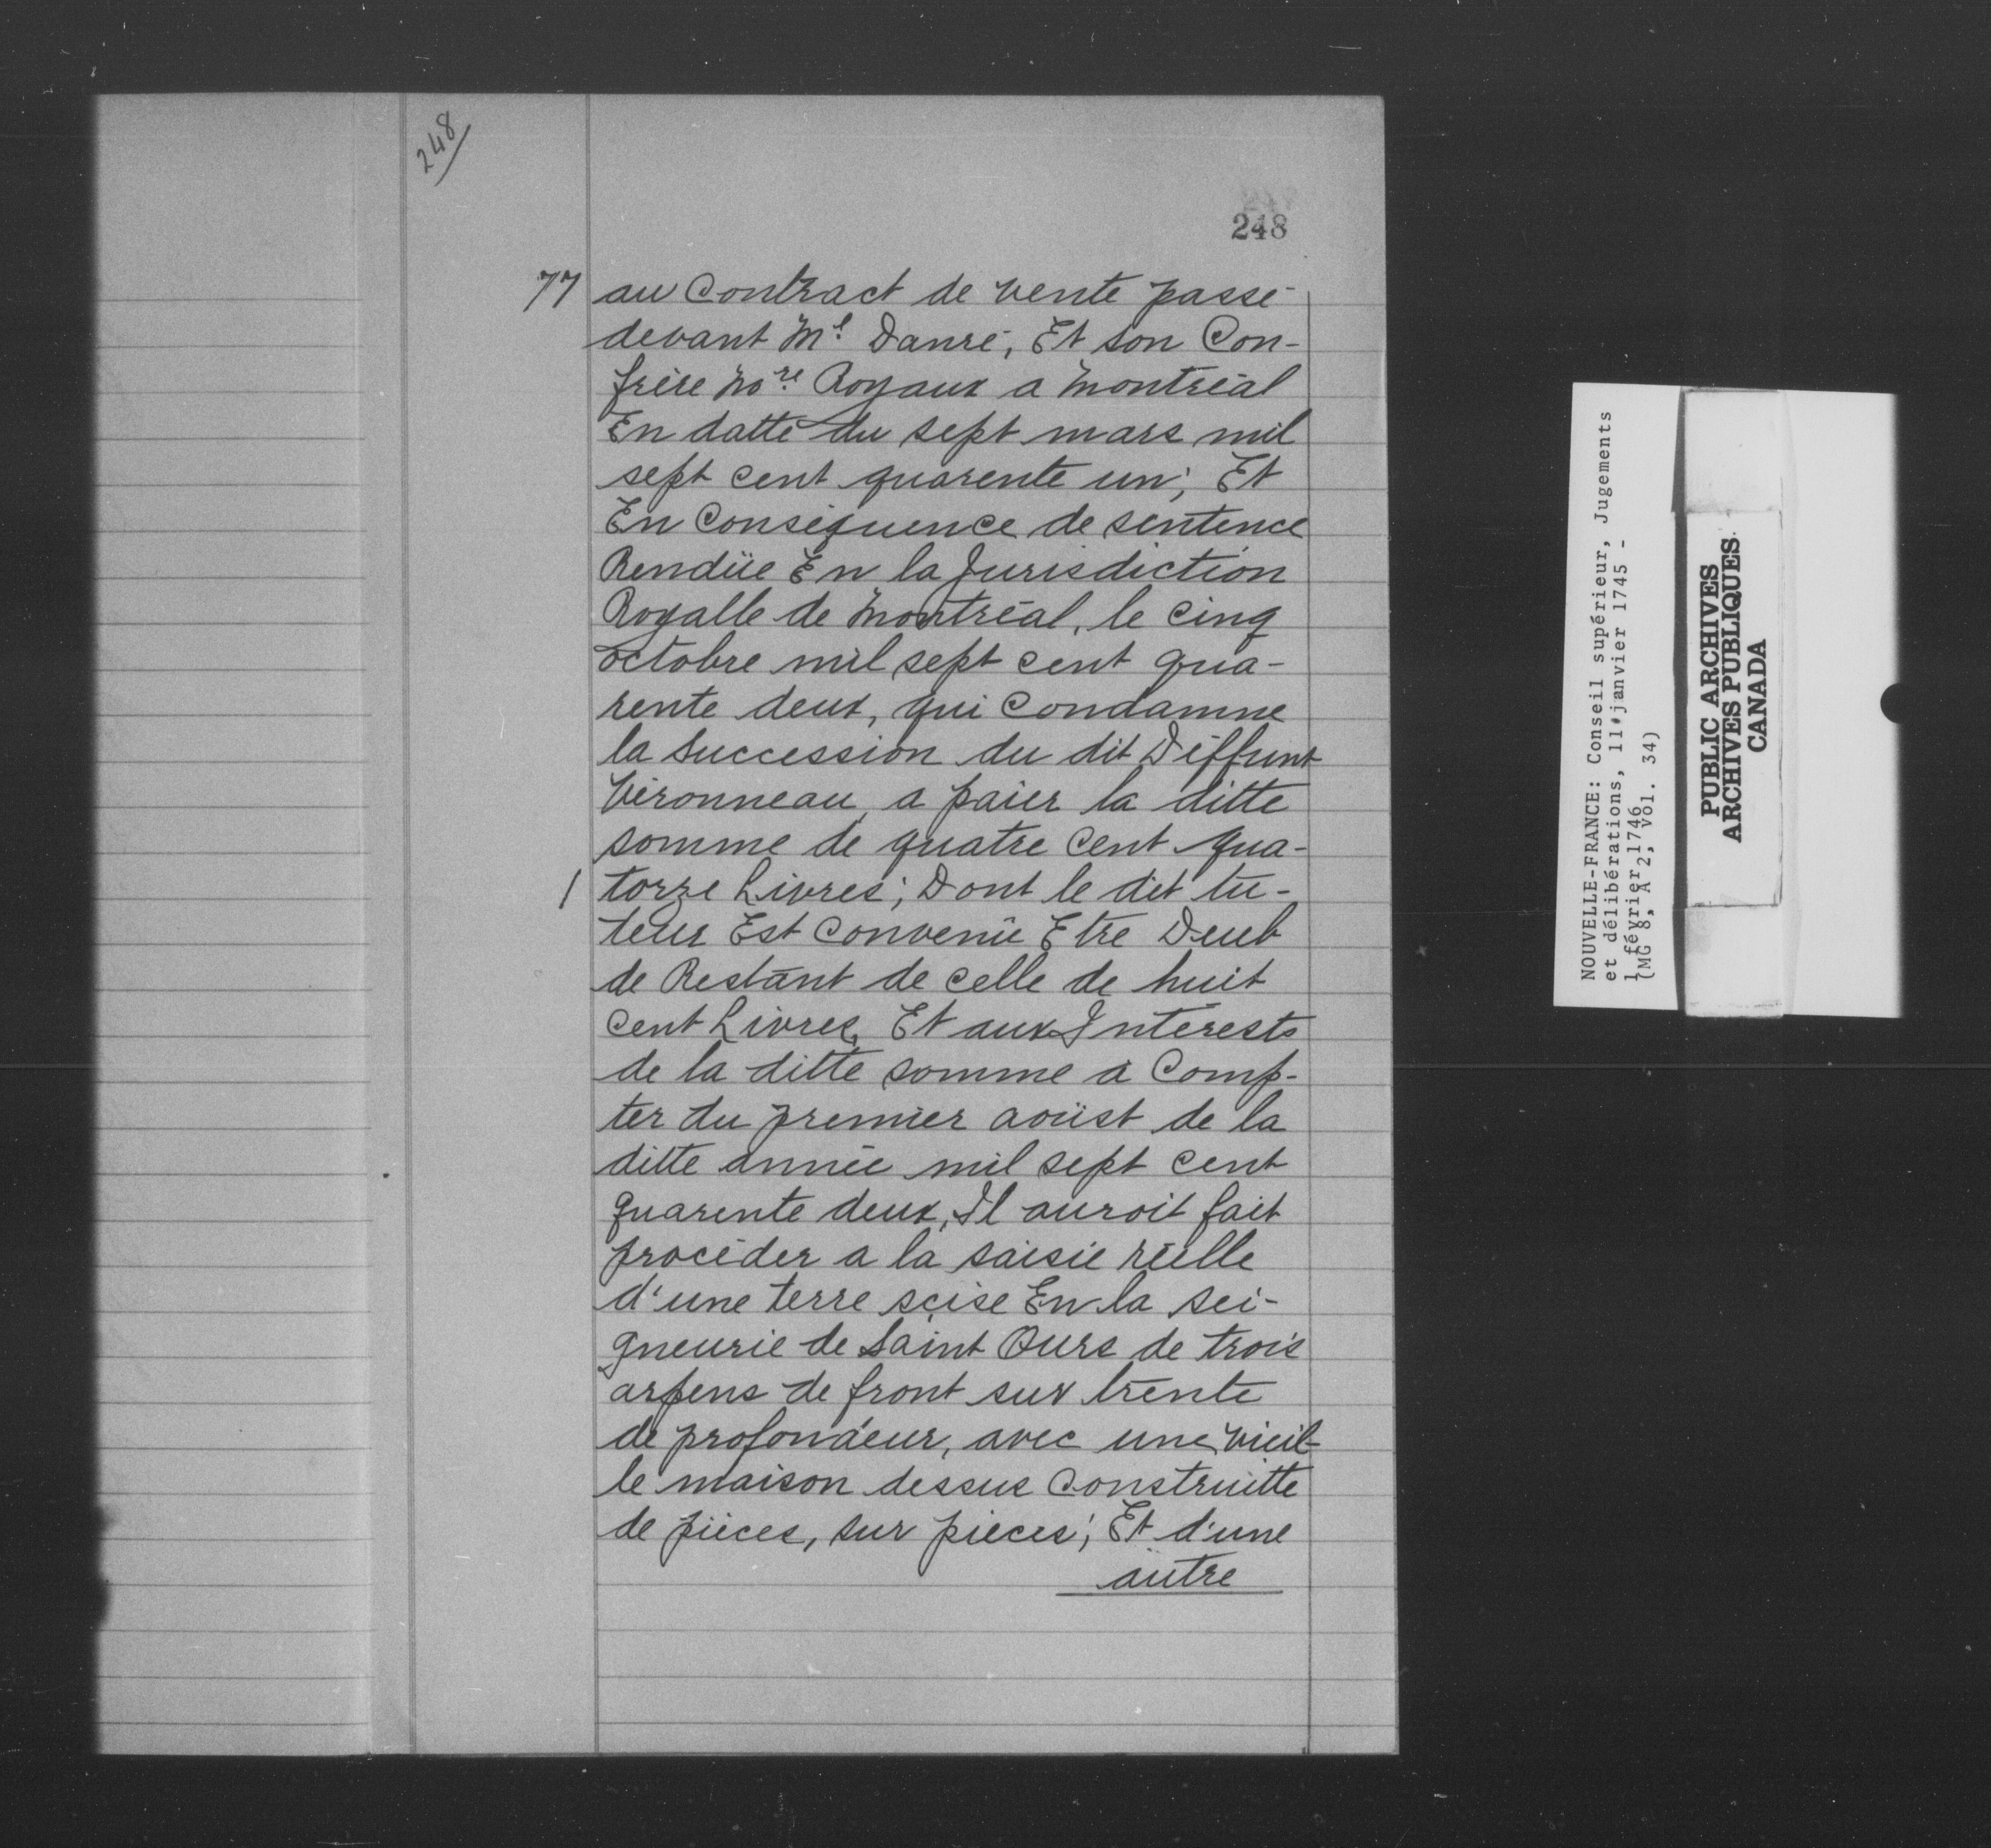 248
248
77 au Contract de vente passé
devant Me. Danré, Et son Con-
frère Nore. Royaux a Montréal
En datte du sept mars mil
sept cent quarente un; Et
En Conséquence de sentence
Rendüe En la Jurisdiction
Royalle de Montréal, le Cinq
octobre mil sept cent qua-
rente deux, qui Condamne
la Succession du dit Déffunt
Véronneau, a païer la ditte
somme de quatre Cent qua-
/ torze Livres; Dont le dit tu-
teur Est Convenü Etre Deub
de Restant de celle de huit
Cent Livres, Et aux Intérests
de la ditte somme à Comp-
ter du premier aoüst de la
ditte année mil sept Cent
quarente deux, Il auroit fait
procéder a la saisie réelle
d'une terre scise En la sei-
gneurie de Saint Ours de trois
arpens de front sur trente
de profondeur, avec une vieil-
le maison dessus Construitte
de pièces, sur pièces; Et d'une
autre
NOUVELLE-FRANCE: Conseil supérieur, Jugements
et délibérations, 11 janvier 1745 -
1 février 1746
(MG 8, A 2, vol. 34)
PUBLIC ARCHIVES
ARCHIVES PUBLIQUES
CANADA